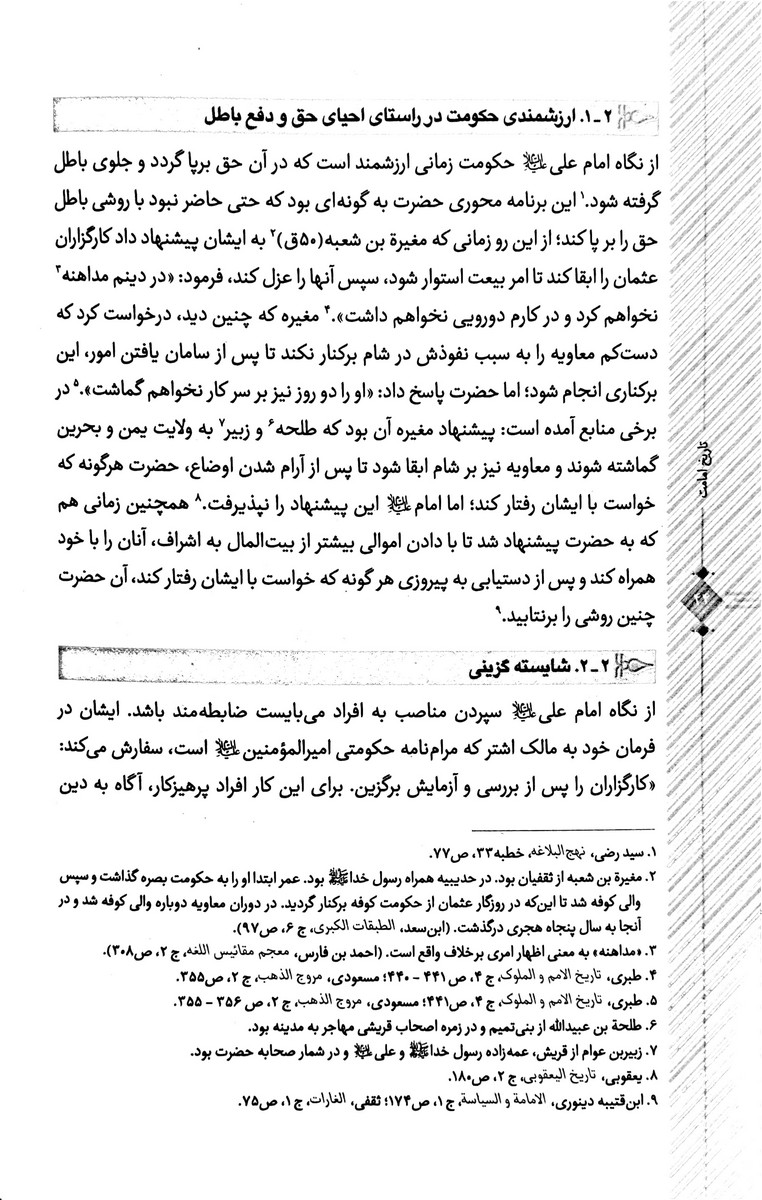 ۲-۱. ارزشمندی حکومت در راستای احیای حق و دفع باطل
از نگاه امام علی علیه‌السلام حکومت زمانی ارزشمند است که در آن حق برپا گردد و جلوی باطل
گرفته شود.۱ این برنامه محوری حضرت به گونه‌ای بود که حتی حاضر نبود با روشی باطل
حق را بر پا کند؛ از این رو زمانی که مغیرة بن شعبه(۵۰ق)۲ به ایشان پیشنهاد داد کارگزاران
عثمان را ابقا کند تا امر بیعت استوار شود، سپس آنها را عزل کند، فرمود: «در دینم مداهنه۳
نخواهم کرد و در کارم دورویی نخواهم داشت».۴ مغیره که چنین دید، درخواست کرد که
دست‌کم معاویه را به سبب نفوذش در شام برکنار نکند تا پس از سامان یافتن امور، این
برکناری انجام شود؛ اما حضرت پاسخ داد: «او را دو روز نیز بر سر کار نخواهم گماشت».۵ در
برخی منابع آمده است: پیشنهاد مغیره آن بود که طلحه۶ و زبیر۷ به ولایت یمن و بحرین
گماشته شوند و معاویه نیز بر شام ابقا شود تا پس از آرام شدن اوضاع، حضرت هرگونه که
خواست با ایشان رفتار کند؛ اما امام علیه‌السلام این پیشنهاد را نپذیرفت.۸ همچنین زمانی هم
که به حضرت پیشنهاد شد تا با دادن اموالی بیشتر از بیت‌المال به اشراف، آنان را با خود
همراه کند و پس از دستیابی به پیروزی هر گونه که خواست با ایشان رفتار کند، آن حضرت
چنین روشی را برنتابید.۹
۲-۲. شایسته گزینی
از نگاه امام علی علیه‌السلام سپردن مناصب به افراد می‌بایست ضابطه‌مند باشد. ایشان در
فرمان خود به مالک اشتر که مرام‌نامه حکومتی امیرالمؤمنین علیه‌السلام است، سفارش می‌کند:
«کارگزاران را پس از بررسی و آزمایش برگزین. برای این کار افراد پرهیزکار، آگاه به دین
۱. سید رضی، نهج‌البلاغه، خطبه۳۳، ص۷۷.
۲. مغیرة بن شعبه از ثقفیان بود. در حدیبیه همراه رسول خدا ﷺ بود. عمر ابتدا او را به حکومت بصره گذاشت و سپس
والی کوفه شد تا این‌که در روزگار عثمان از حکومت کوفه برکنار گردید. در دوران معاویه دوباره والی کوفه شد و در
آنجا به سال پنجاه هجری درگذشت. (ابن‌سعد، الطبقات الکبری، ج ۶، ص۹۷).
۳. «مداهنه» به معنی اظهار امری برخلاف واقع است. (احمد بن فارس، معجم مقائیس اللغه، ج ۲، ص۳۰۸).
۴. طبری، تاریخ الامم و الملوک، ج ۴، ص ۴۴۱ - ۴۴۰؛ مسعودی، مروج الذهب، ج ۲، ص۳۵۵.
۵. طبری، تاریخ الامم و الملوک، ج ۴، ص۴۴۱؛ مسعودی، مروج الذهب، ج ۲، ص ۳۵۶ - ۳۵۵.
۶. طلحة بن عبیدالله از بنی‌تمیم و در زمره اصحاب قریشی مهاجر به مدینه بود.
۷. زبیربن عوام از قریش، عمه‌زاده رسول خدا ﷺ و علی علیه‌السلام و در شمار صحابه حضرت بود.
۸. یعقوبی، تاریخ الیعقوبی، ج ۲، ص۱۸۰.
۹. ابن‌قتیبه دینوری، الامامة و السیاسة، ج ۱، ص۱۷۴؛ ثقفی، الغارات، ج ۱، ص۷۵.
تاریخ امامت